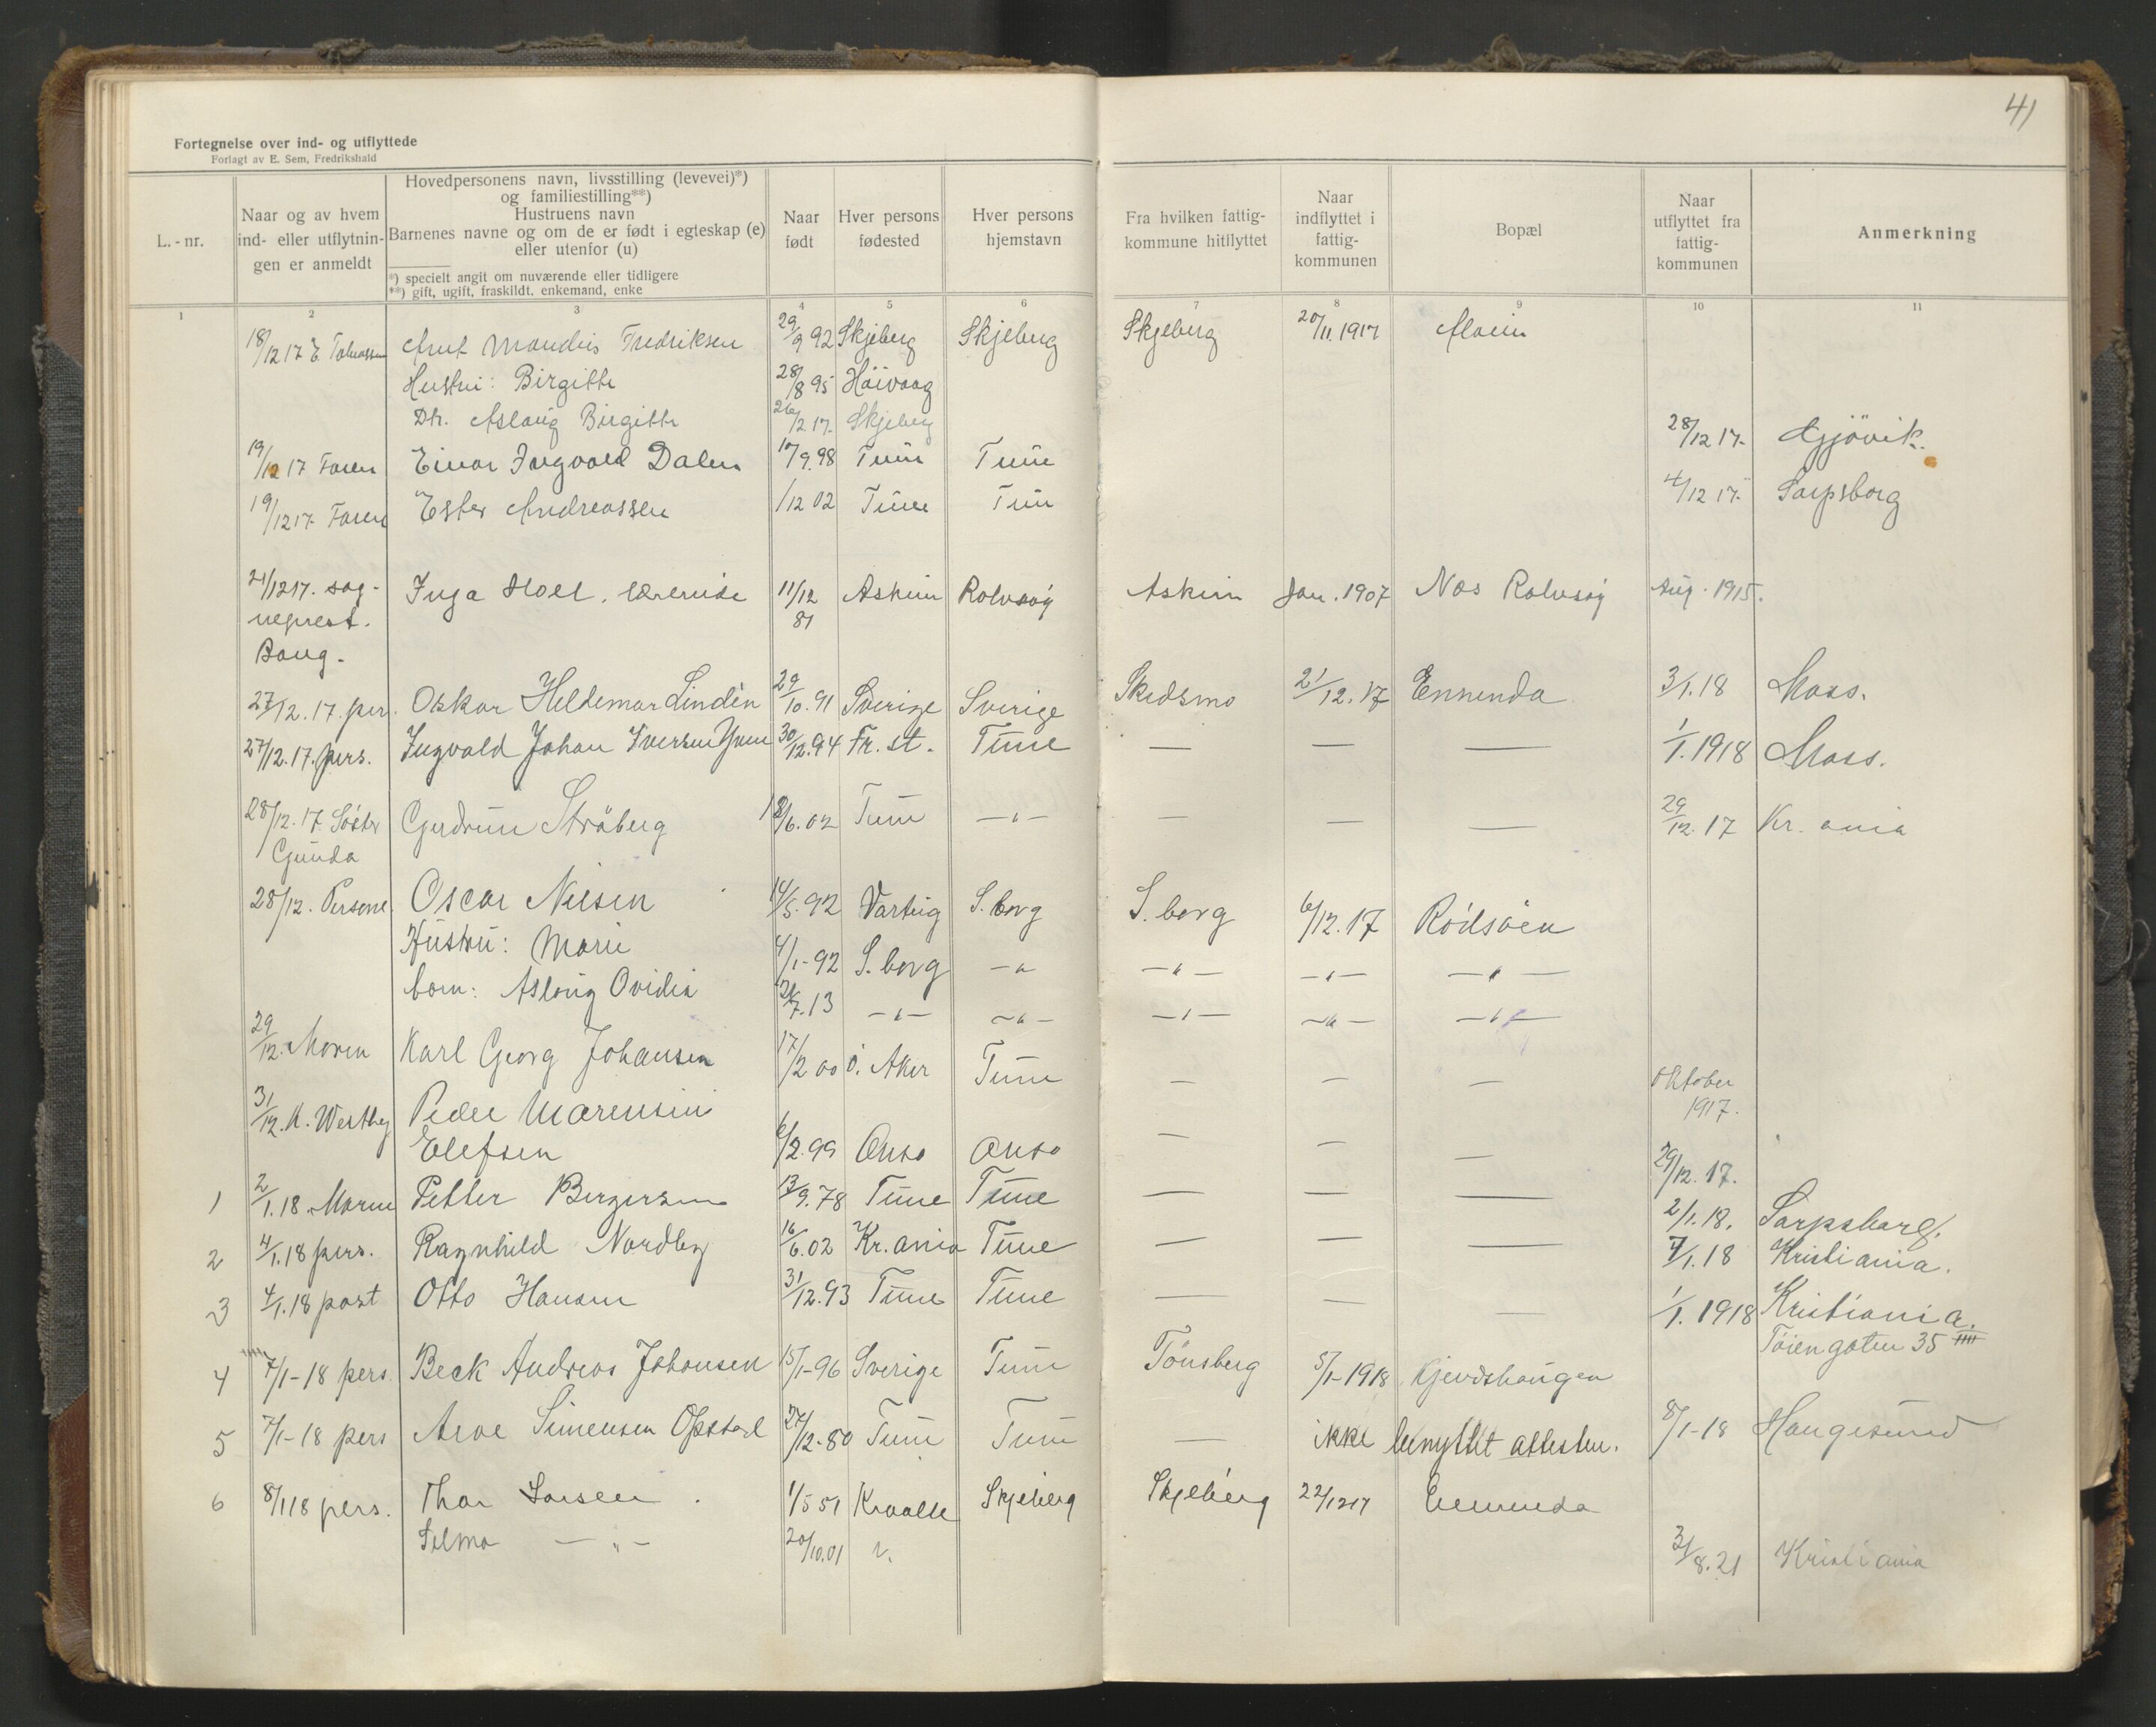 41
Fortegnelse over ind- og utflyttede
Forlagt av E. Sem, Fredrikshald
L.-nr.
Naar og av hvem
ind- eller utflytnin-
gen er anmeldt
Hovedpersonens navn, livsstilling (levevei)*)
og familiestilling**)
Hustruens navn
Barnenes navne og om de er født i egteskap (e)
eller utenfor (u)
*) specielt angit om nuværende eller tidligere
**) gift, ugift, fraskildt, enkemand, enke
Naar
født
Hver persons
fødested
Hver persons
hjemstavn
Fra hvilken fattig-
kommune hitflyttet
Naar
indflyttet i
fattig-
kommunen
Bopæl
Naar
utflyttet fra
fattig-
kommunen
Anmerkning
1 2 3 4 5 6 7 8 9 10 11
18/12 17 E. Fredriksen 29/9 92 Skjeberg Skjeberg Skjeberg 20/11.1917
Hustru: Birgitte 28/8 95 Höivaag
Dt. Aslaug Birgitte 26/2 17. Skjeberg
19/12 17 Faren Einar Ingvald Dalen 17/9.98 Tune Tune 28/12 17. Gjövik.
19/12 17. Faren Ester Andreassen /12 02 Tune Tune 4/12 17. Sarpsborg
21/12 17. sog- Inga Hoel, lærerinde 11/12 Askim Rolvsøy Askim Jan. 1907 Næs Rolvsøy Aug. 1915.
neprest. 81
Boug.
27/12.17. per. Oskar Heldemar Lindèn 29/10.91 Sverige Sverige Skedsmo 21/12.17 Ennenda 3/1.18 Moss.
27/12.17. pers. Ingvald Johan Iversen 30/12.94 Fr.st. Tune — — — 1/1.1918 Moss.
28/12.17 Söster Gudrun Ströberg 18/6.02 Tune —"— — — — 29/12.17 Kr.ania
Gunda
28/12. Personl. Oscar Nilsen 14/5.92 Varteig S.borg S.borg 6/12.17 Rödsöen
Hustru: Marie 4/1-92 S.borg —" —"— —"— —"—
barn: Aslaug Ovidia 21/7.13 —"— —"— —"— —"— —"—
29/12. Moren Karl Georg Johansen 17/2 00 Ö. Aker Tune — — — Oktober
1917.
31/12. A. Westby Peder Marensin
Elefsen 6/2.99 Onsø Onsø — — — 29/12.17.
1 2/1.18 Moren Petter Birgersen 13/9.78 Tune Tune — — — 2/1.18. Sarpsborg.
2 4/1.18 pers. Ragnhild Nordby 16/6.02 Kr.ania Tune — — — 7/1.18 Kristiania.
3 4/1.18 post Otto Hansen 31/12.93 Tune Tune — — — 1/1.1918 Kristiania.
Töiengaten 35
4 7/1-18 pers. Beck Andreas Johansen 15/1-96 Sverige Tune Tönsberg 5/1-1918 Kjerdshaugen
5 7/1-18 pers Arve Simensen Opstad 27/12-80 Tune Tune — ikke benyttet attesten. 8/1-18 Haugesund
6 8/1 18 pers. Thor Larsen. 1/5 51 Skjeberg Skjeberg 22/12 17 Ennenda
Selma —"— 20/10.01 3/8.21 Kristiania